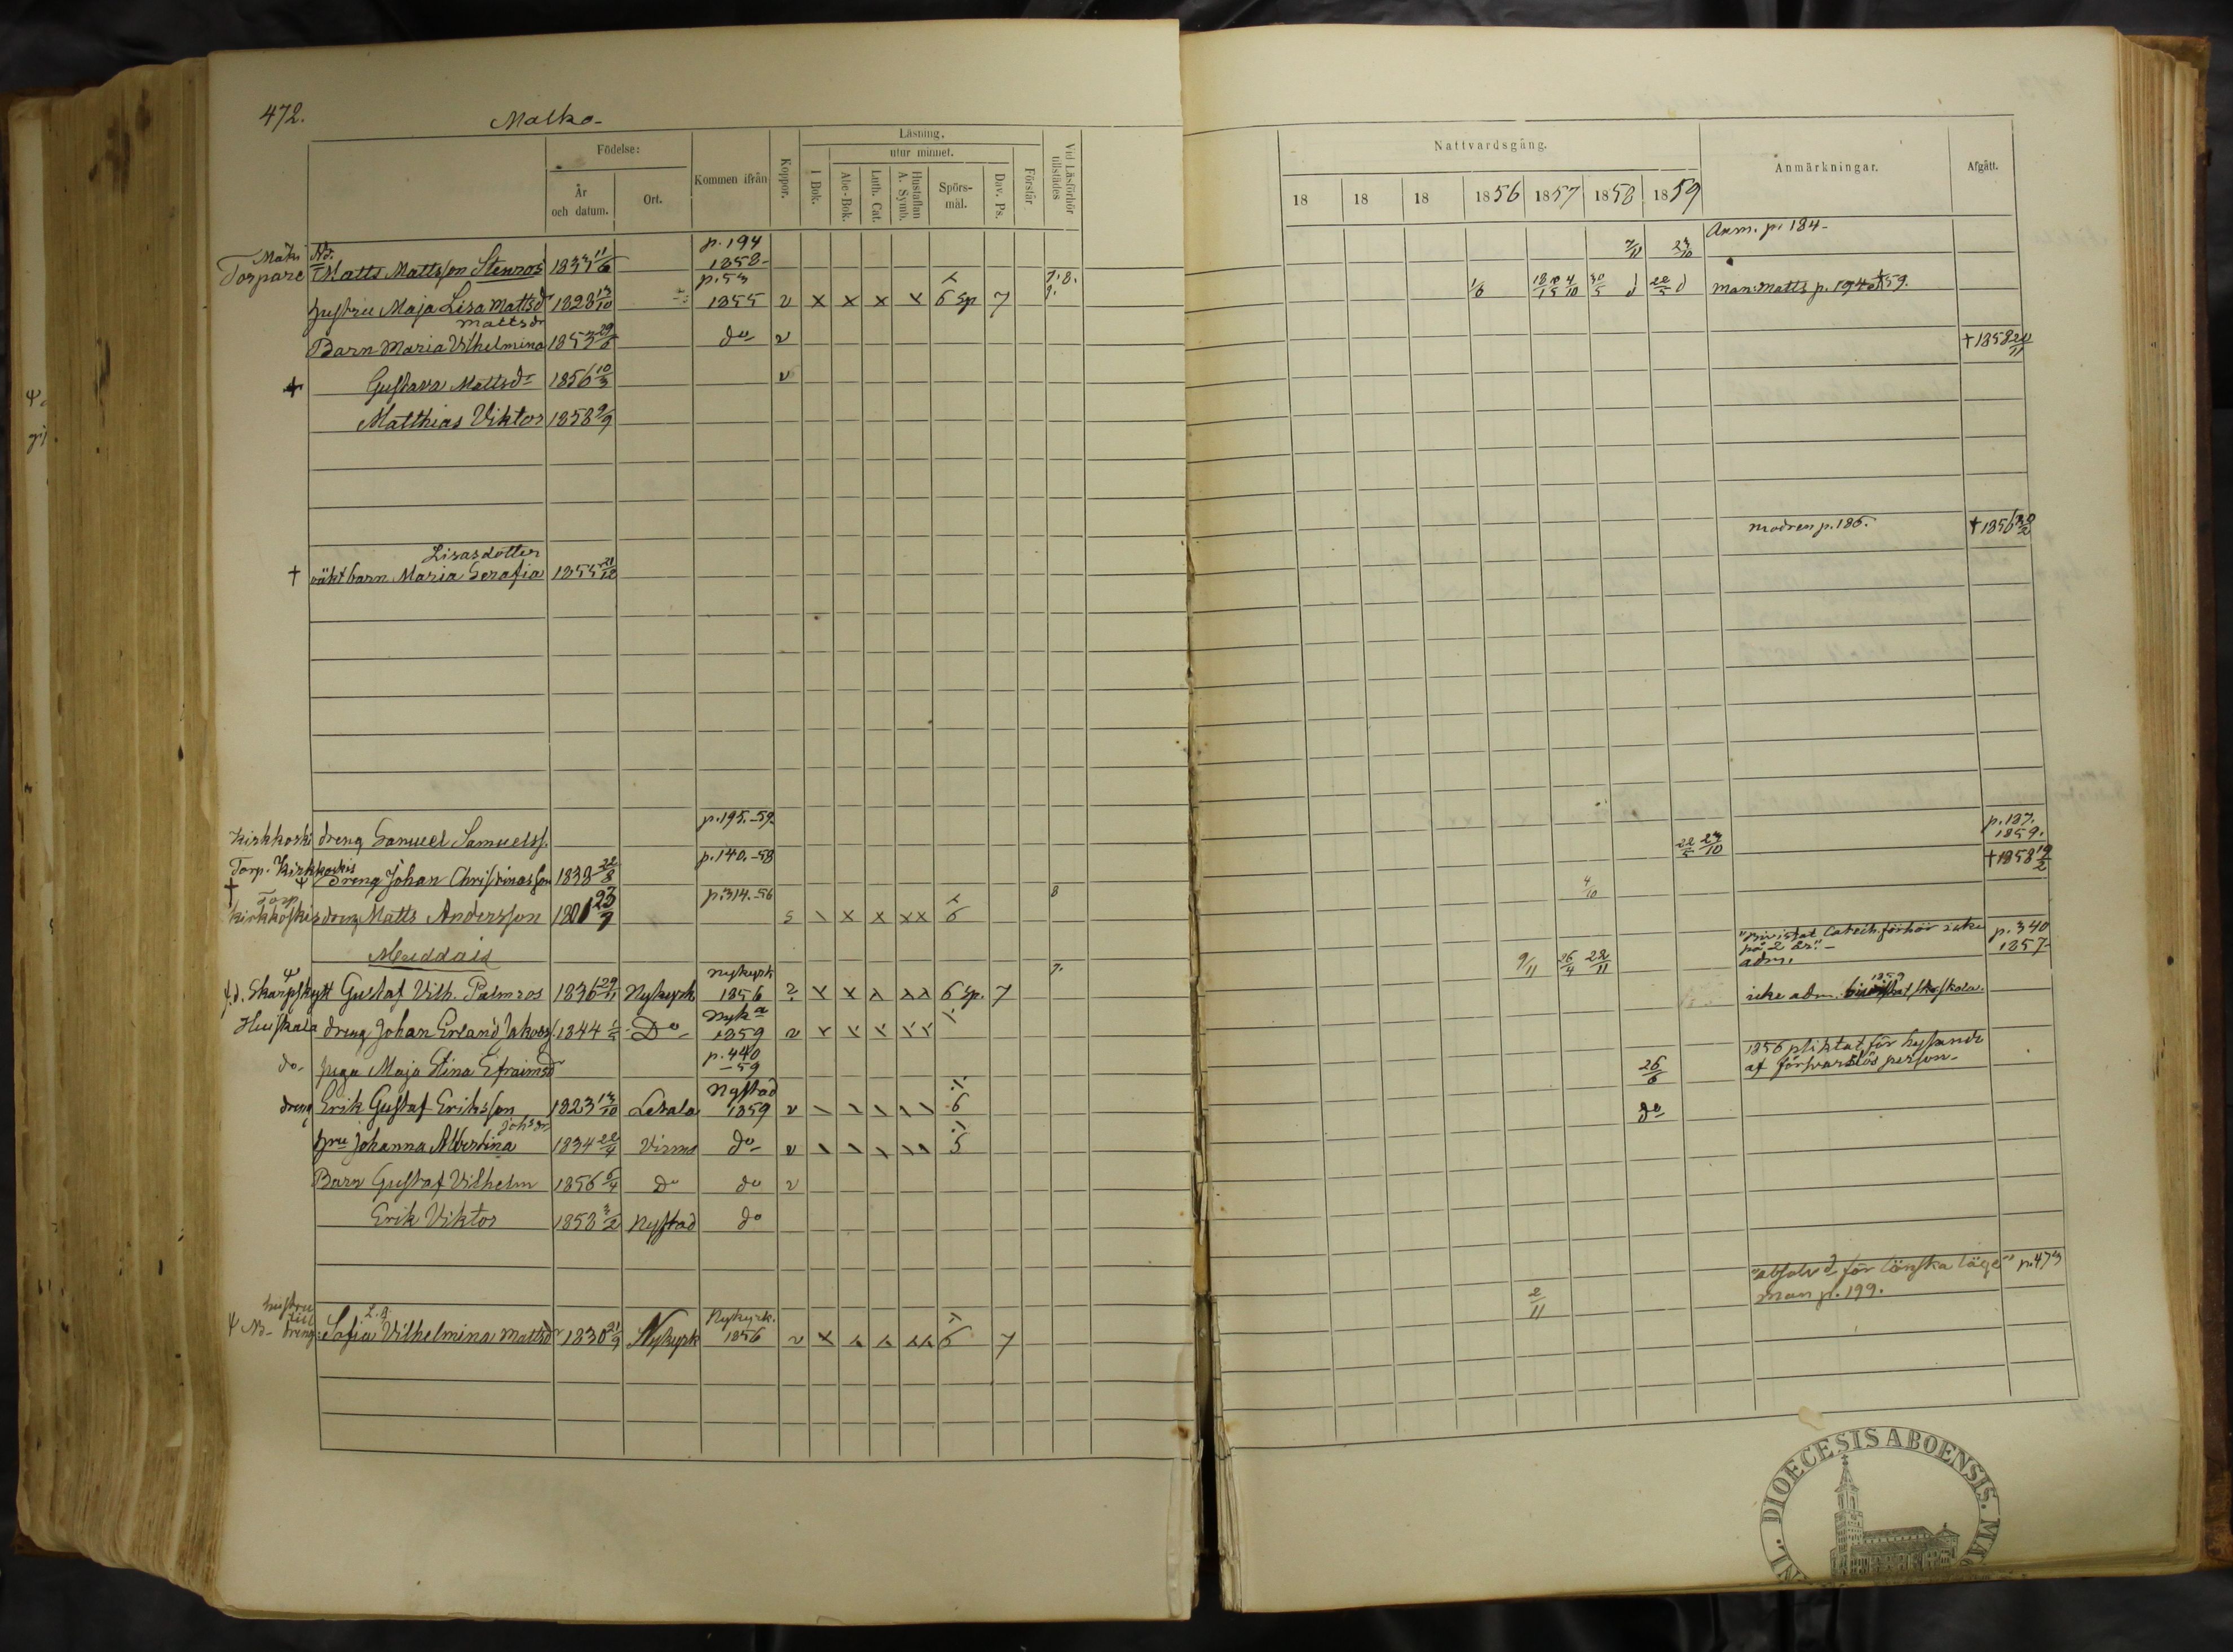 472.
Malko-
Födelse:
År
och datum.
Ort.
Kommen ifrån
Koppor.
Läsning.
I Bok.
utur minnet.
Abc-Bok.
Luth. Cat.
Hustaflan
A. Symb.
Spörs-
mål.
Dav. Ps.
Förstår
Vid Läsförhör
tillstädes
Nattvardsgång.
18 18 18 1856 1857 1858 1859
Anmärkningar.
Afgått.
Mäki
Torpare Matts Mattsson Stenros 1833 11/6 p. 194 1858- 2/11 23/10 Anm. p. 184-
hustru Maja Lisa Mattsdr 1828 13/10 p. 53 1855 v x x x x 6 Sp 7 7. 8. 9. 30/5 22/5 man: Matts p. 194
Mattsdr
Barn Maria Vilhelmina 1853 29/6 do v
† Gustava Mattsdr 1856 10/3 v † 1858 20/11
Matthias Viktor 1858 9/9
Lisasdotter
† oäkt barn Maria Serafia 1855 21/12 modren p. 186. † 1856
Kirkkoski dreng Samuel Samuelss. p. 195.-59. 22/5 23/10 p. 187. 1859.
Torp. Kirkkoskis
† dreng Johan Christinasson 1838 22/8 p. 140.-58 † 1858 19/2
Torp
Kirkkoskis dreng Matts Andersson 1801 23/9 p. 314.-56 5 \ x x xx 6 8 4/10
Meiddais
Skarpskytt Gustaf Vilh. Palmros 1836 29/11 Nykyrk Nykyrk 1856 2 6 Sp. 7 7. 9/11 26/4 22/11 "Bivistat Catech. förhör icke
på 2 år."-
adm. p. 340 1857-
Huiskala dreng Johan Erland Jakobss. 1844 Do- Nyka 1859 v icke adm. 1859 bivistat skrskolan.
do- piga Maja Stina Efraimsdr p. 440 -59
26/6 1856 pliktat för hysande
af försvarslös person-
dreng Erik Gustaf Eriksson 1823 13/10 Letala Nystad 1859 v \ \ \ \\ 6
do
Johsdr
hru Johanna Albertina 1834 22/4 Virmo do- v \ \ \ \\ 5
Barn Gustaf Vilhelm 1856 6/4 do do v
Erik Viktor 1858 3/2 Nystad do
hustru
till
dreng: Sofia Vilhelmina Mattsdr 1830 21/9 Nykyrk Nykyrk. 1856 v 6 7 2/11 "absolvd för lönska läge"
man p. 199. p. 473
DIOECESIS ABOENSIS.